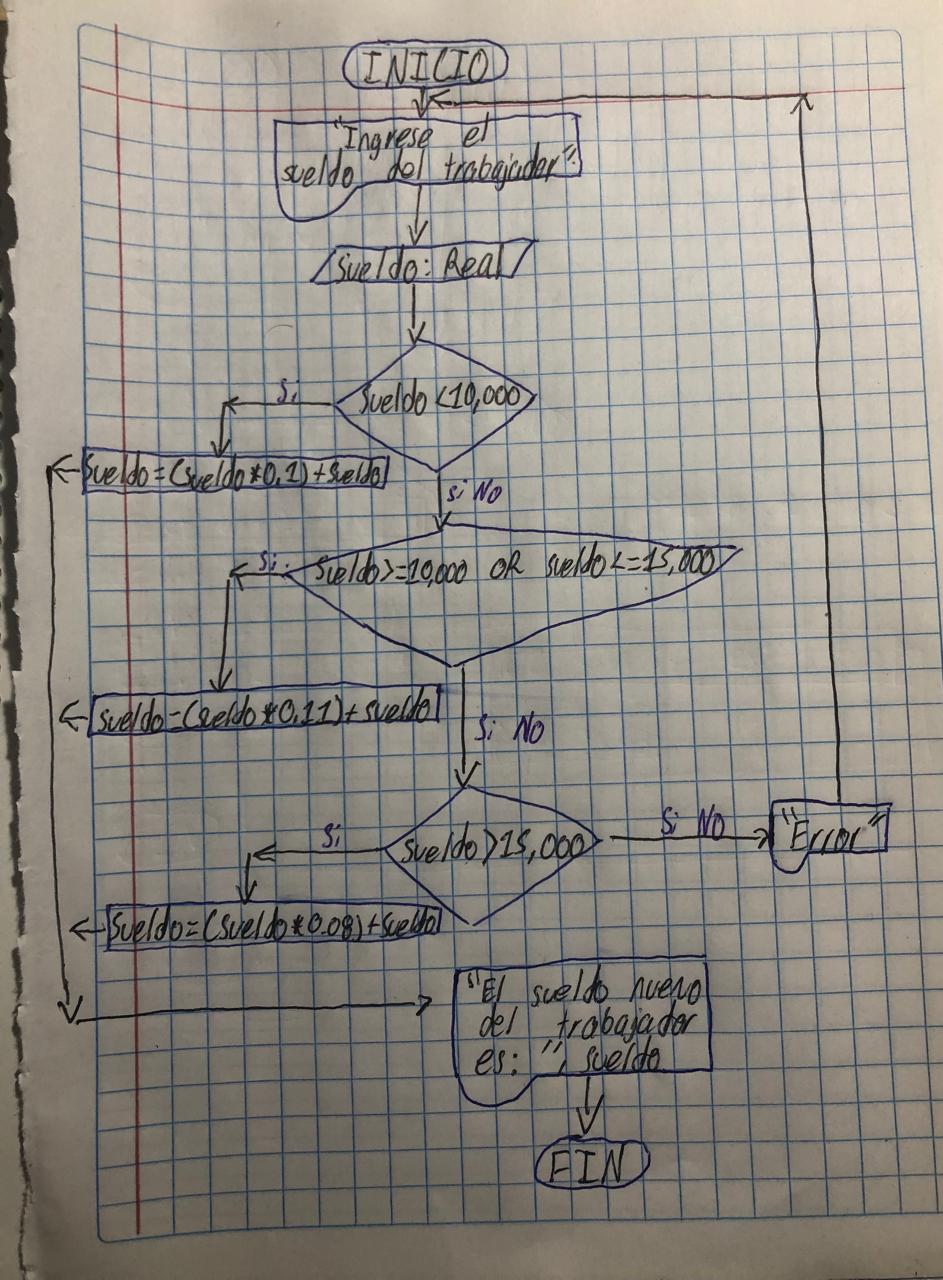 INICIO
"Ingrese el
sueldo del trabajador"
Sueldo: Real
Si
Sueldo <10,000
Sueldo=(sueldo*0,1)+sueldo
Si NO
Si
Sueldo>=10,000 OR sueldo<=15,000
sueldo=(sueldo*0,11)+sueldo
Si NO
Si
Sueldo>15,000
Si NO
"Error"
Sueldo=(sueldo*0.08)+sueldo
"El sueldo nuevo
del trabajador
es: ", sueldo
FIN